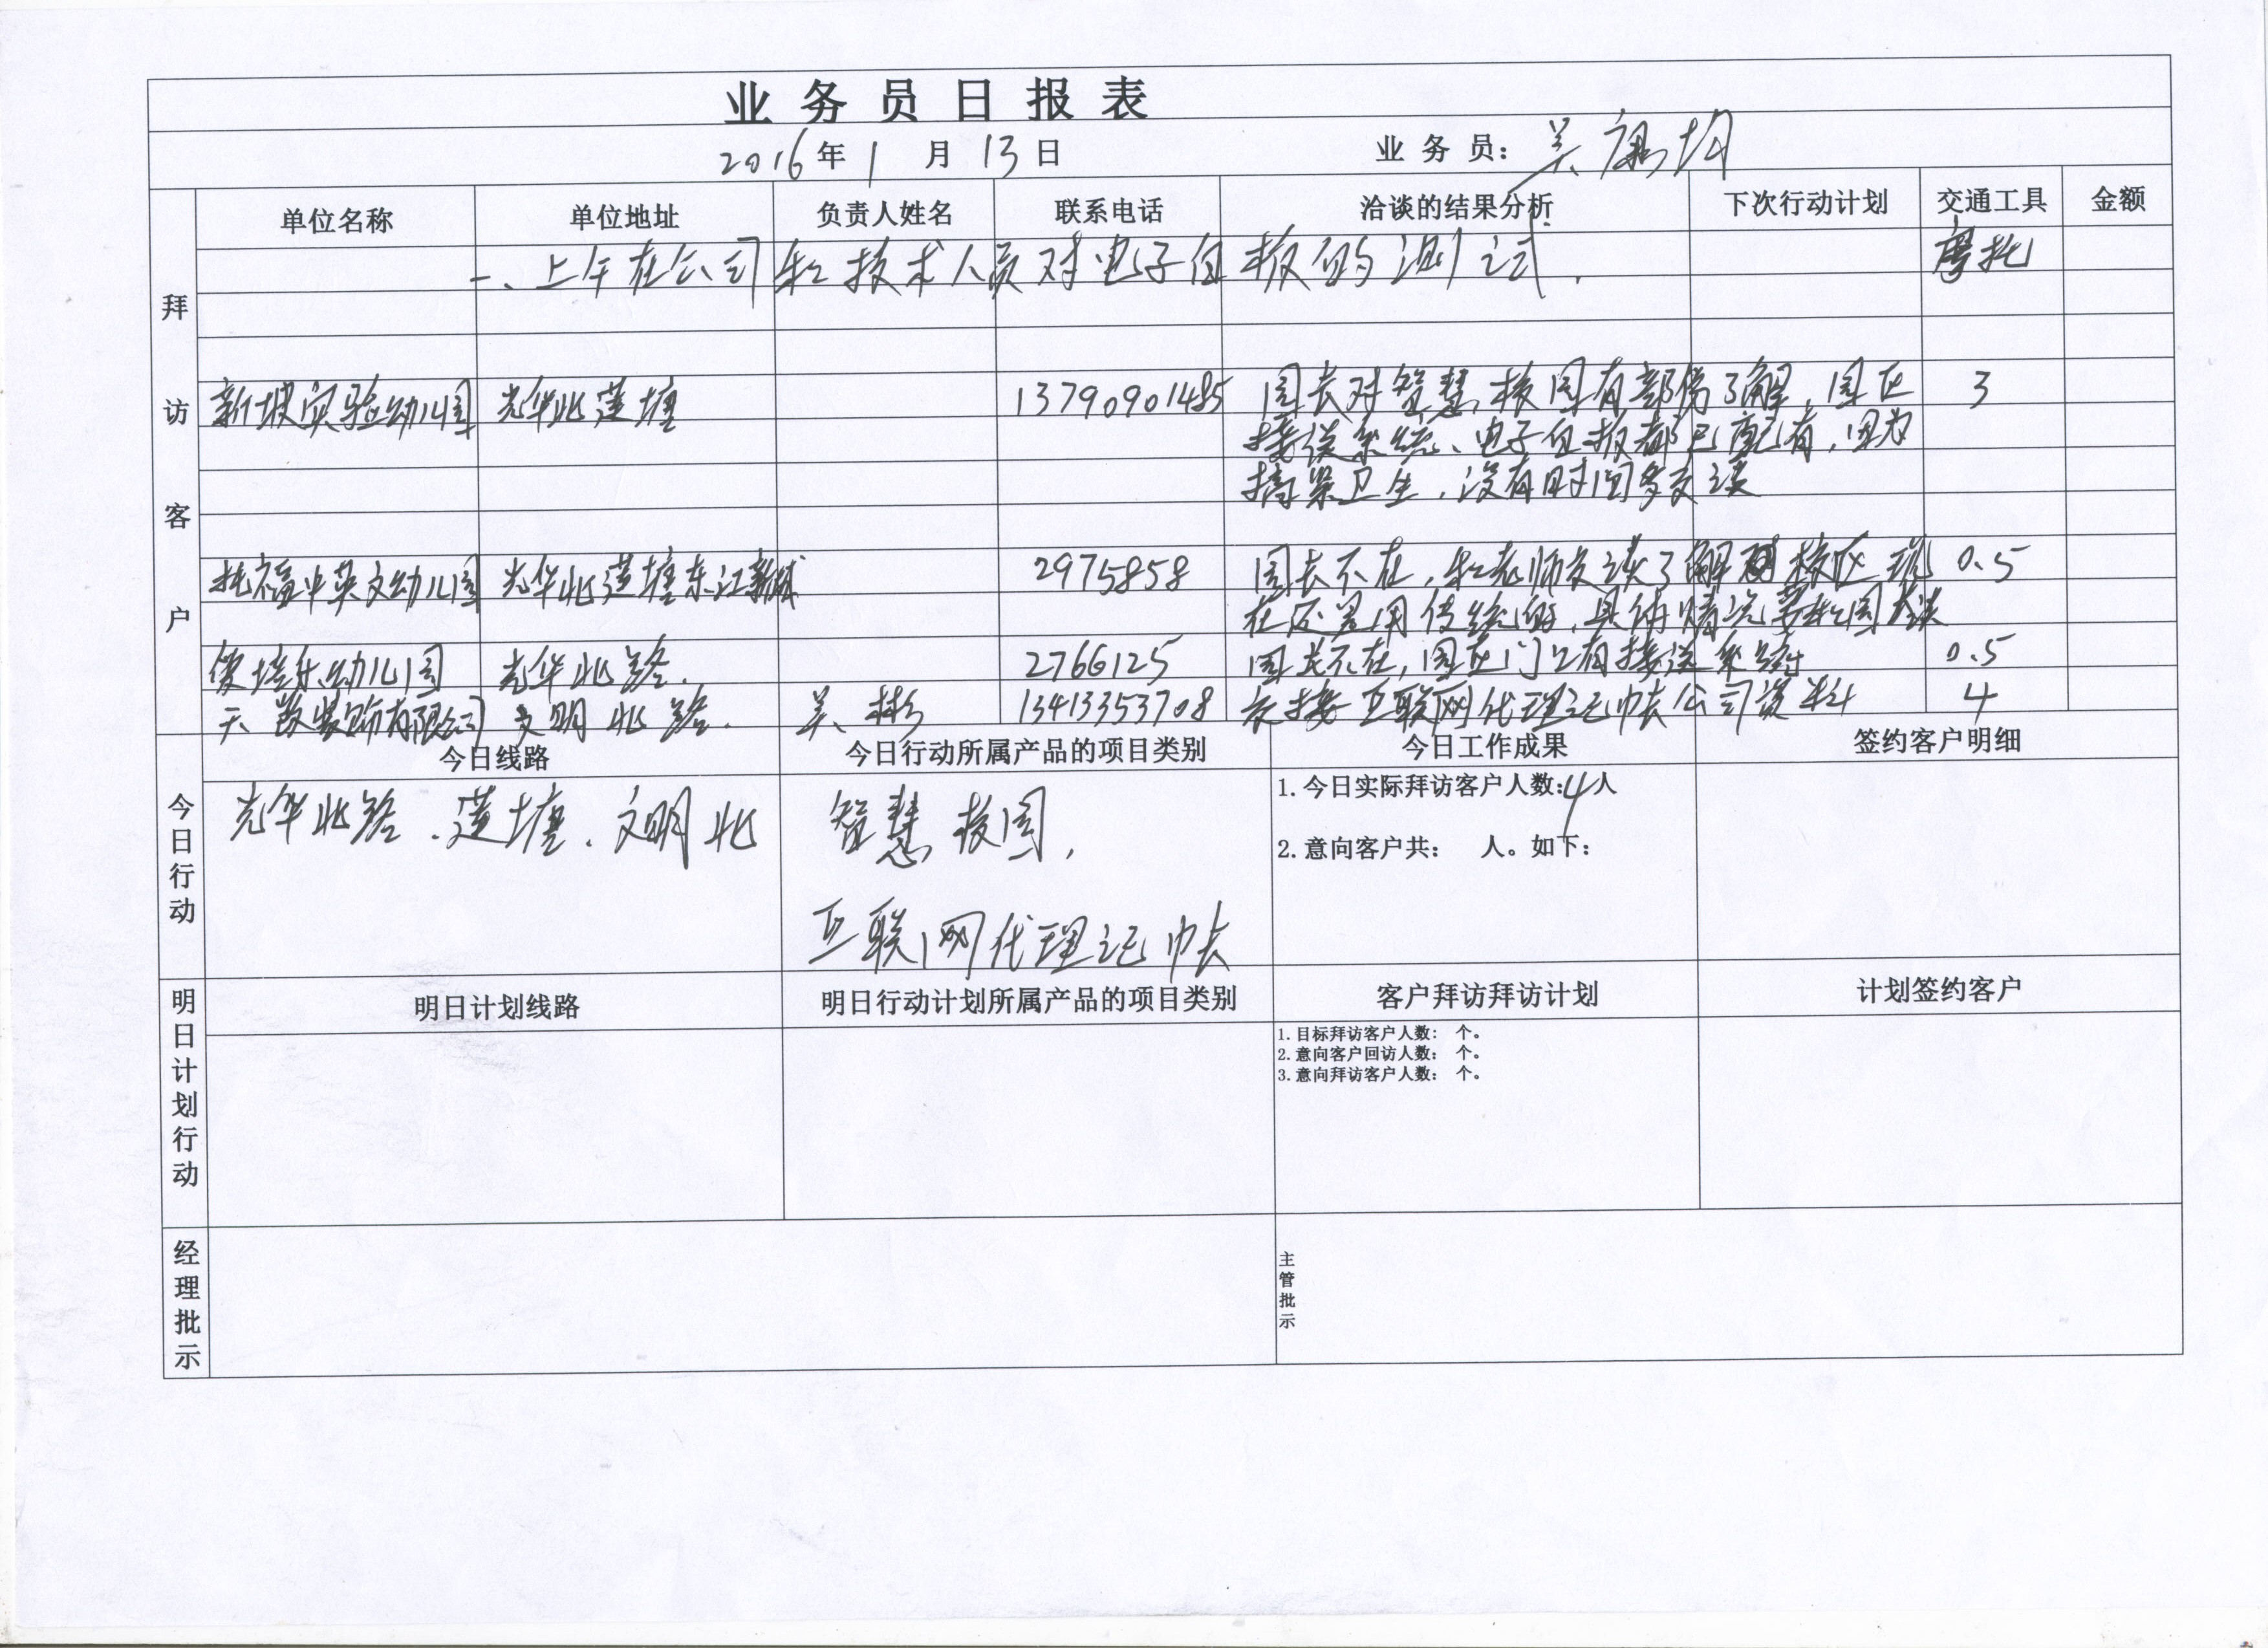 业务员日报表
2016年1月13日 业务员：吴
单位名称 单位地址 负责人姓名 联系电话 洽谈的结果分析 下次行动计划 交通工具 金额
拜访客户
一、上午在公司和技术人员对电子白板的测试. 摩托
新坡实验幼儿园 光华北莲塘 13790901485 园长对智慧校园有部份了解，园区 3
接送系统、电子白板都已配有，因为
搞紧卫生，没有时间多交谈
托福中英文幼儿园 光华北莲塘东江新城 2975858 园长不在，和老师交谈了解到校区现 0.5
在还是用传统的，具体情况要和园长谈
培乐幼儿园 光华北路. 2766125 园长不在，园区门口有接送系统 0.5
天 装饰有限公司 文明北路. 吴彬 13413353708 交接互联网代理记帐公司资料 4
今日行动
今日线路 今日行动所属产品的项目类别 今日工作成果 签约客户明细
光华北路、莲塘、文明北 智慧校园，
互联网代理记帐
1.今日实际拜访客户人数：4人
2.意向客户共： 人。如下：
明日计划行动
明日计划线路 明日行动计划所属产品的项目类别 客户拜访拜访计划 计划签约客户
1.目标拜访客户人数： 个。
2.意向客户回访人数： 个。
3.意向拜访客户人数： 个。
经理批示
主管批示